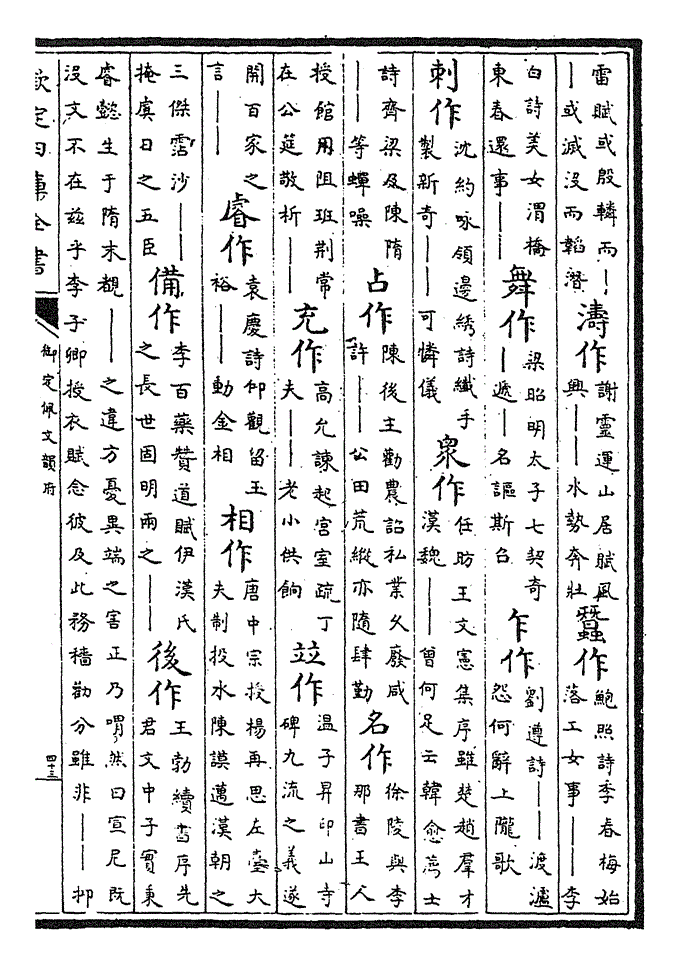 雷賦或殷轔而——或減没而韜潛 濤作 謝靈運山居賦風興——水勢奔壯 蠶作 鮑照詩季春梅始落工女事——李
白詩美女渭橋東春還事—— 舞作 梁昭明太子七契奇—遞—名謳斯召 乍作 劉遵詩——渡瀘怨何辭上隴歌
刺作 沈約咏領邊綉詩纖手製新奇——可憐儀 衆作 任昉王文憲集序雖楚趙羣才漢魏——曾何足云韓愈薦士
詩齊梁及陳隋——等蟬噪 占作 陳後主勸農詔私業久廢咸許——公田荒縱亦隨肆勤 名作 徐陵與李那書王人
授館用阻班荆常在公筵敬析—— 充作 高允諫起宫室疏丁夫——老小供餉 並作 温子昇印山寺碑九流之義遂
開百家之言—— 睿作 袁慶詩仰觀留玉裕——動金相 相作 唐中宗授楊再思左臺大夫制投水陳謨邁漢朝之
三傑霑沙——掩虞日之五臣 備作 李百藥贊道賦伊漢氏之長世固明兩之—— 後作 王勃續書序先君文中子實秉
睿懿生于隋末覩——之違方憂異端之害正乃喟然曰宣尼既
没文不在兹乎李子卿授衣賦念彼及此務穡勸分雖非——抑
欽定四庫全書
御定佩文韻府
四十三